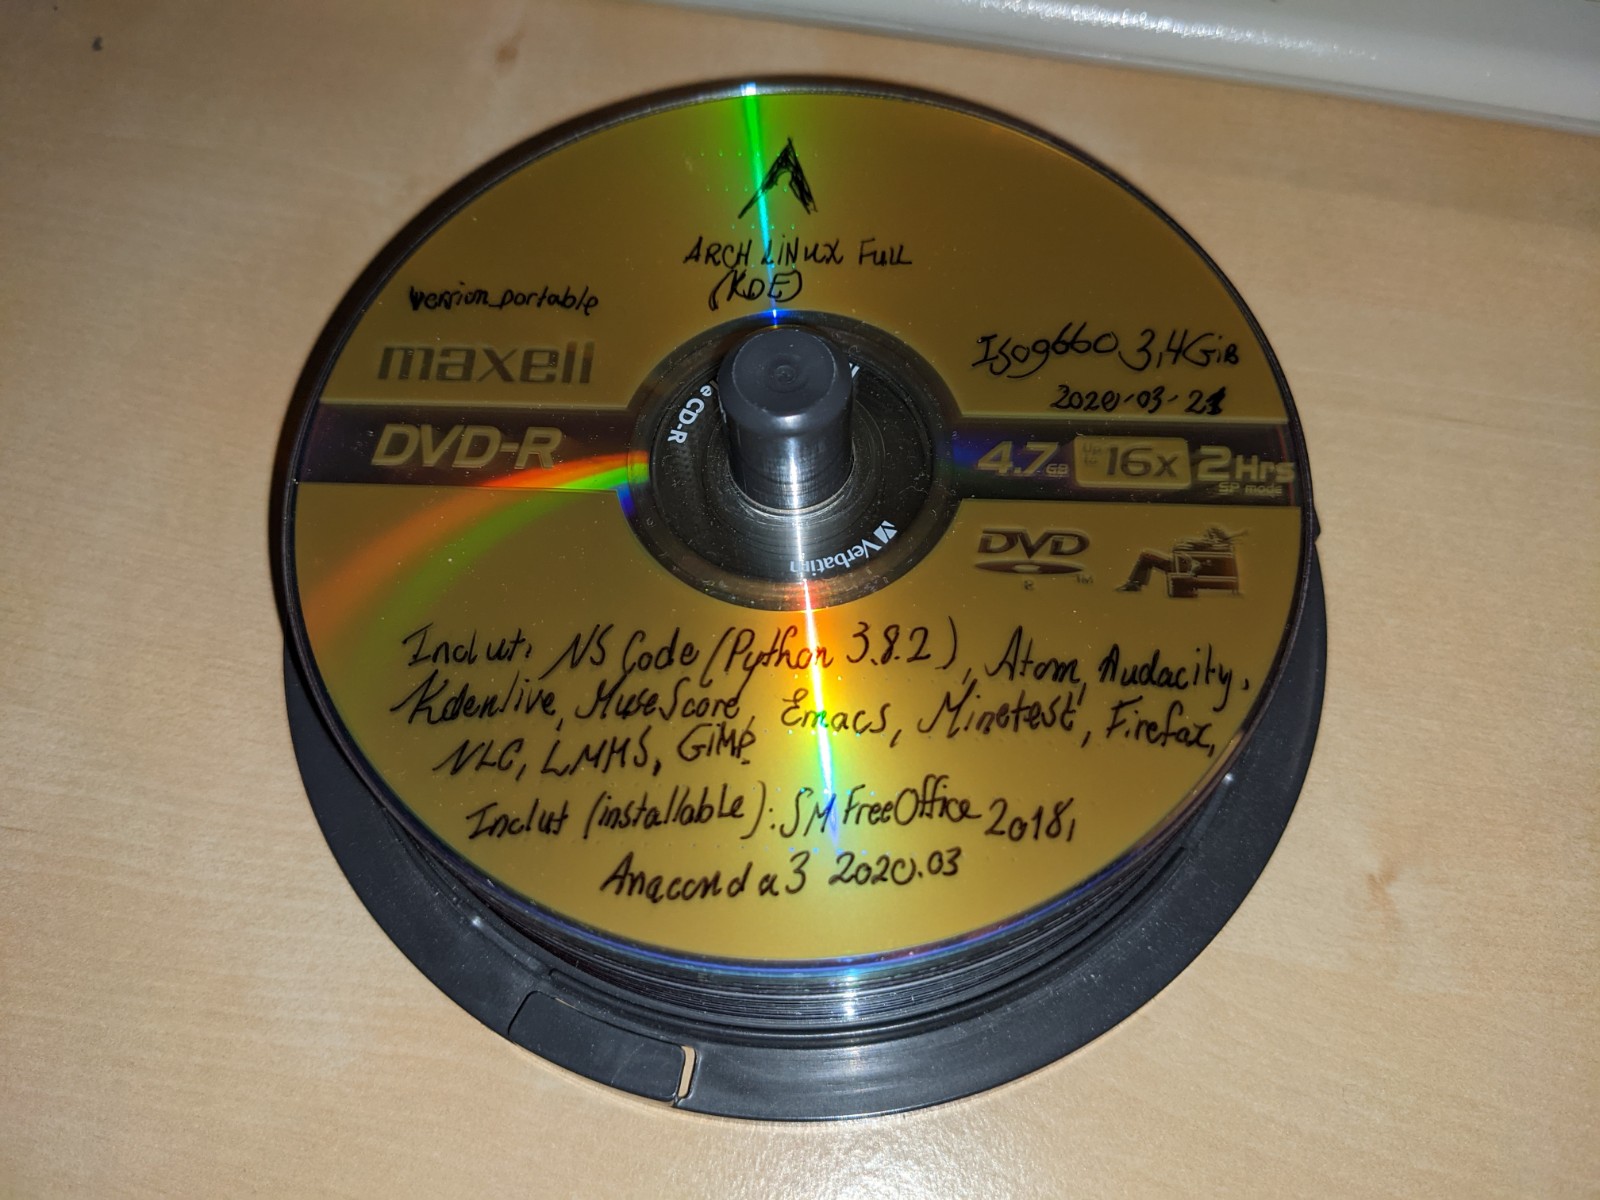 ARCH LINUX FULL
(KDE)
version portable
maxell
Iso9660 3,4GiB
2020-03-21
DVD-R
e CD-R
4.7GB Up to 16x 2Hrs
SP mode
Verbatim
DVD
R TM
Inclut: VS Code (Python 3.8.2), Atom, Audacity,
Kdenlive, MuseScore, Emacs, Minetest, Firefox,
VLC, LMMS, GIMP
Inclut (installable): SM FreeOffice 2018,
Anaconda3 2020.03